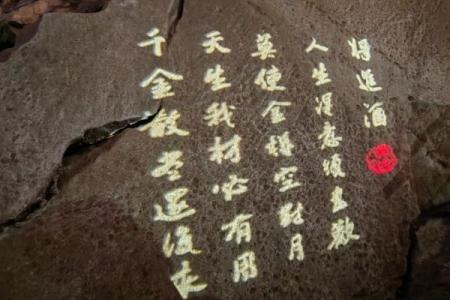 将進酒
人生得意须尽歡
莫使金樽空對月
天生我材必有用
千金散尽還復来